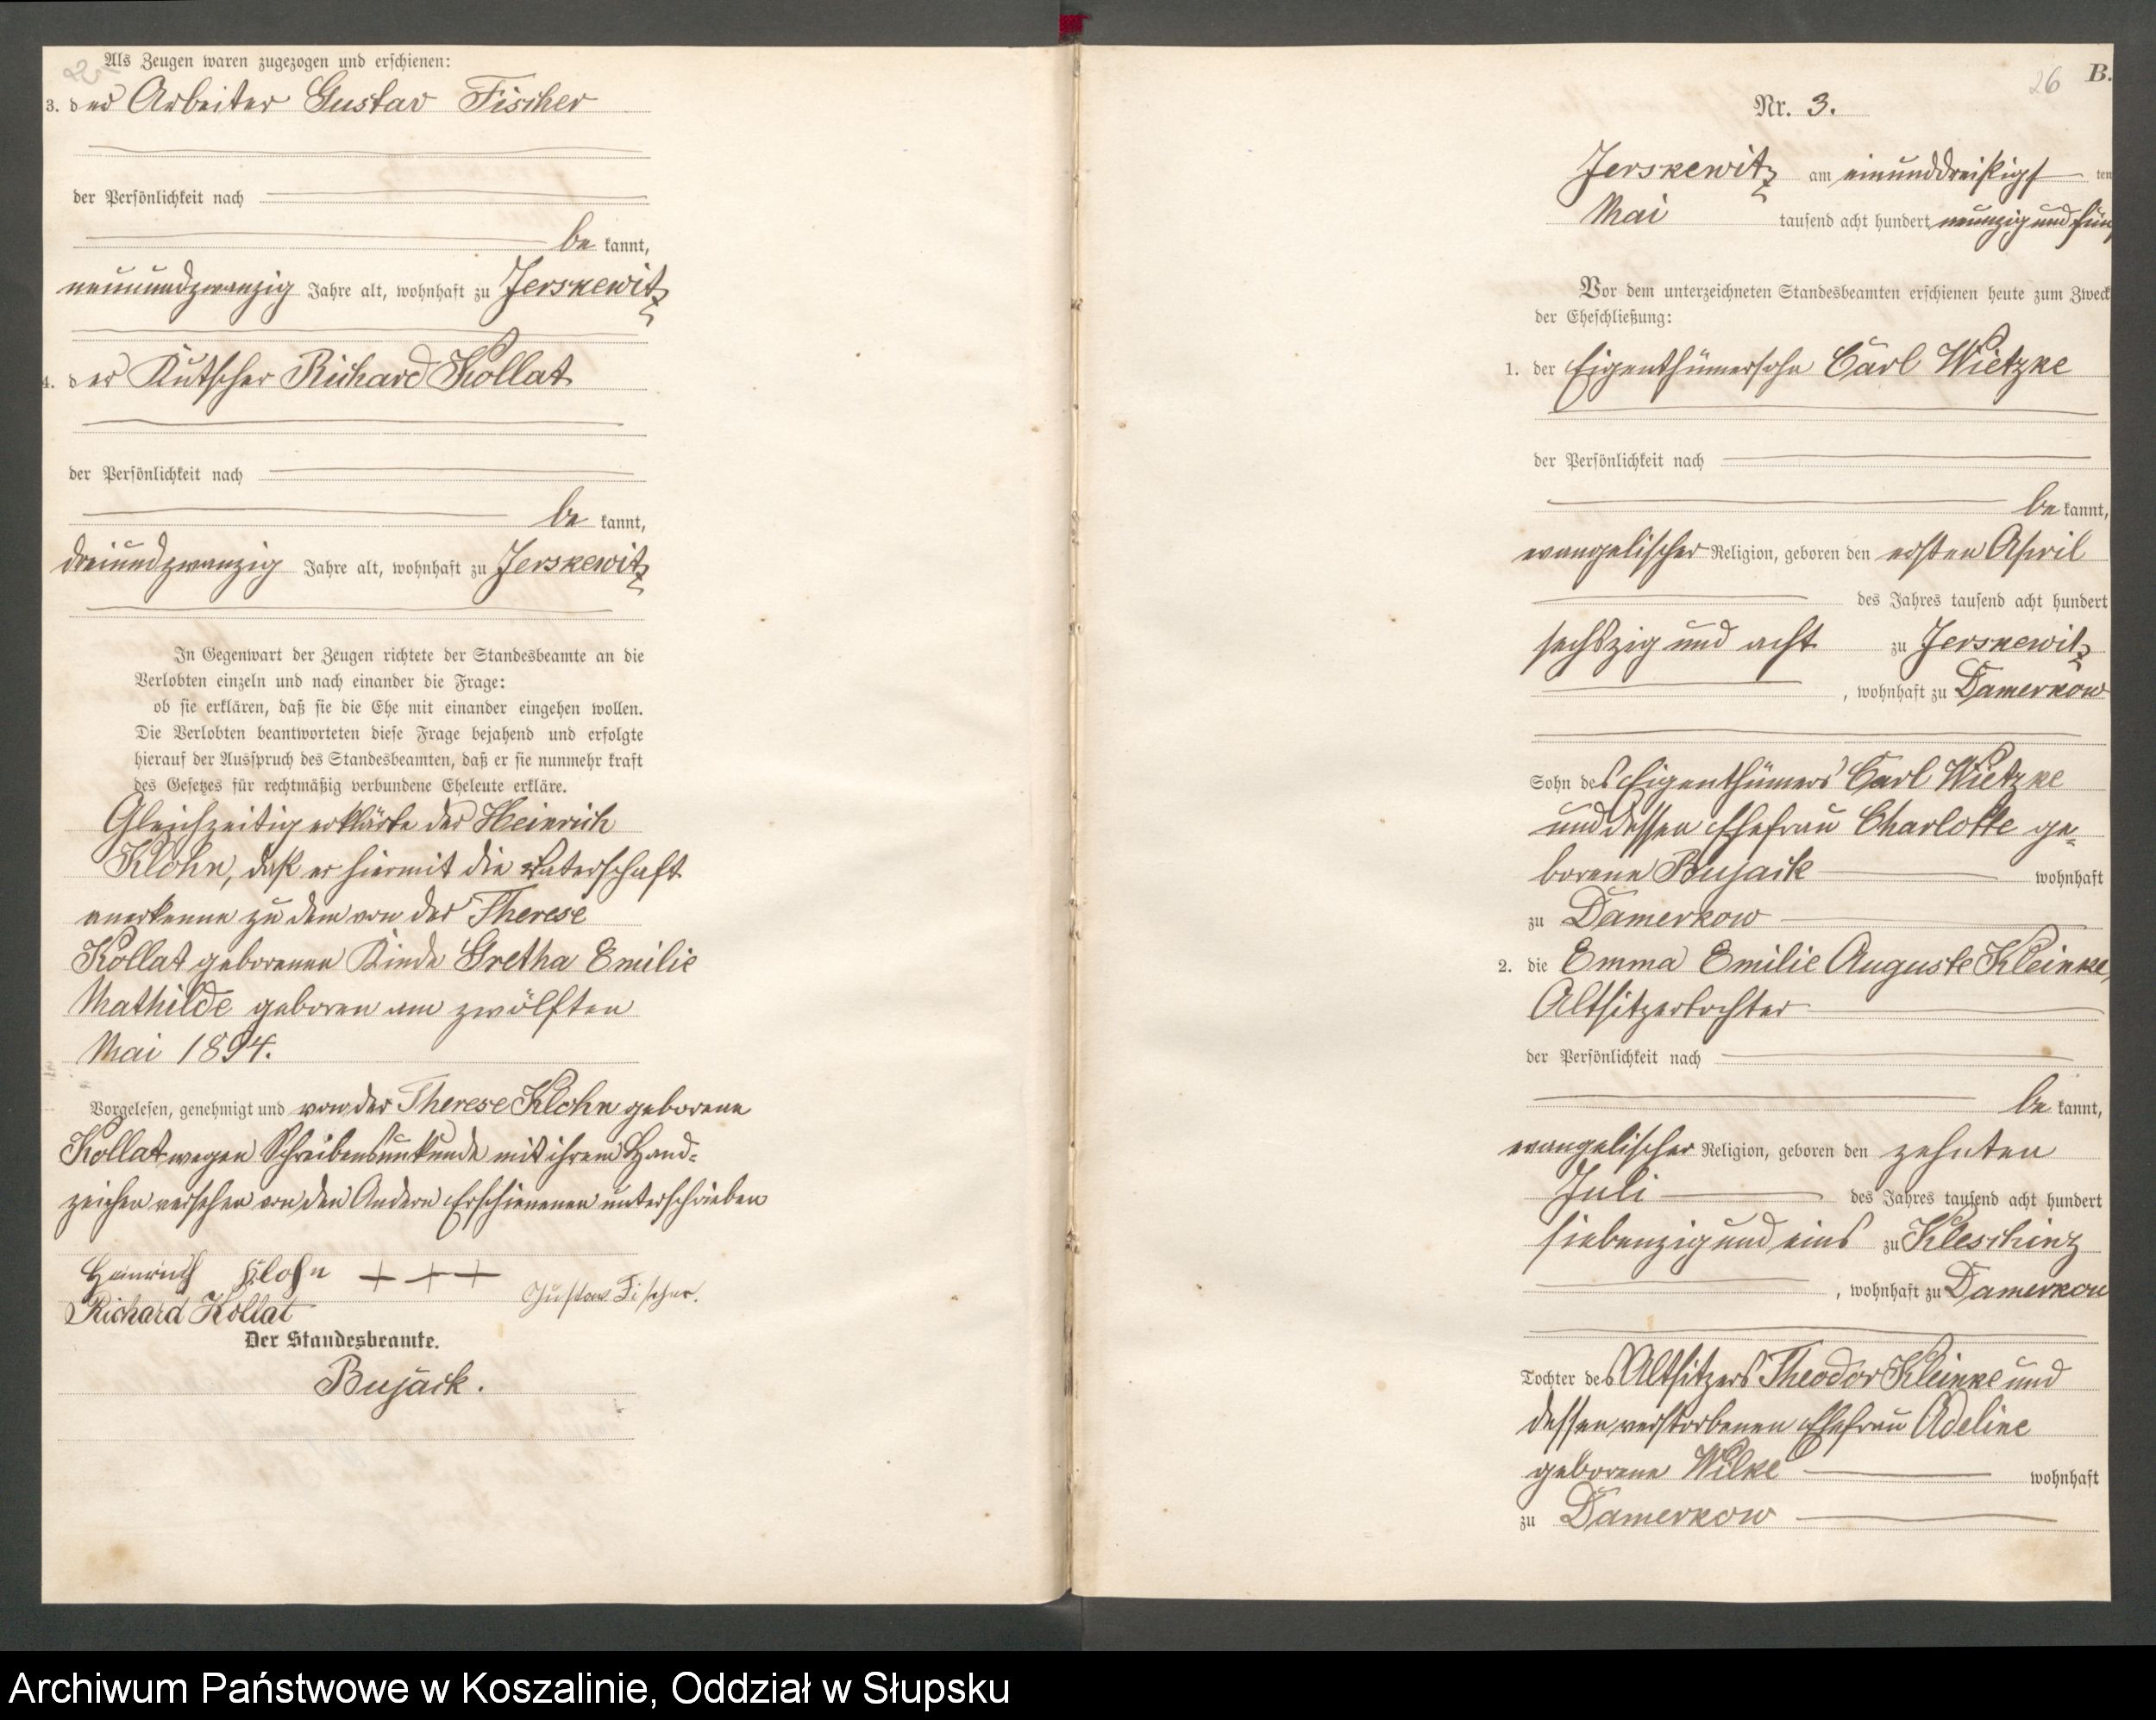 Als Zeugen waren zugezogen und erschienen:
3. der Arbeiter Gustav Fischer
der Persönlichkeit nach
be kannt,
neunundzwanzig Jahre alt, wohnhaft zu Jerskewitz
4. der Kutscher Richard Kollat
der Persönlichkeit nach
be kannt,
dreiundzwanzig Jahre alt, wohnhaft zu Jerskewitz
In Gegenwart der Zeugen richtete der Standesbeamte an die
Verlobten einzeln und nach einander die Frage:
ob sie erklären, daß sie die Ehe mit einander eingehen wollen.
Die Verlobten beantworteten diese Frage bejahend und erfolgte
hierauf der Ausspruch des Standesbeamten, daß er sie nunmehr kraft
des Gesetzes für rechtmäßig verbundene Eheleute erkläre.
Gleichzeitig erklärte der Heinrich
Klohn, daß er hiermit die Vaterschaft
anerkenne zu dem von der Therese
Kollat geborenen Kinde Gretha Emilie
Mathilde geboren am zwölften
Mai 1894.
Vorgelesen, genehmigt und von der Therese Klohn geborene
Kollat wegen Schreibensunkunde mit ihrem Hand-
zeichen versehen von den Andern Erschienenen unterschrieben
Heinrich Klohn + + + Gustav Fischer.
Richard Kollat
Der Standesbeamte.
Bujack.
26 B.
Nr. 3.
Jerskewitz am einunddreißigs ten
Mai tausend acht hundert neunzig und fünf
Vor dem unterzeichneten Standesbeamten erschienen heute zum Zweck
der Eheschließung:
1. der Eigenthümersohn Carl Wietzke
der Persönlichkeit nach
be kannt,
evangelischer Religion, geboren den ersten April
des Jahres tausend acht hundert
sechszig und acht zu Jerskewitz
, wohnhaft zu Damerkow
Sohn des Eigenthümers Carl Wietzke
und dessen Ehefrau Charlotte ge-
borene Bujack wohnhaft
zu Damerkow
2. die Emma Emilie Auguste Kleinke,
Altsitzertochter
der Persönlichkeit nach
be kannt,
evangelischer Religion, geboren den zehnten
Juli des Jahres tausend acht hundert
siebenzig und eins zu Kleschinz
, wohnhaft zu Damerkow
Tochter des Altsitzers Theodor Kleinke und
dessen verstorbenen Ehefrau Adeline
geborene Wilke wohnhaft
zu Damerkow
Archiwum Państwowe w Koszalinie, Oddział w Słupsku